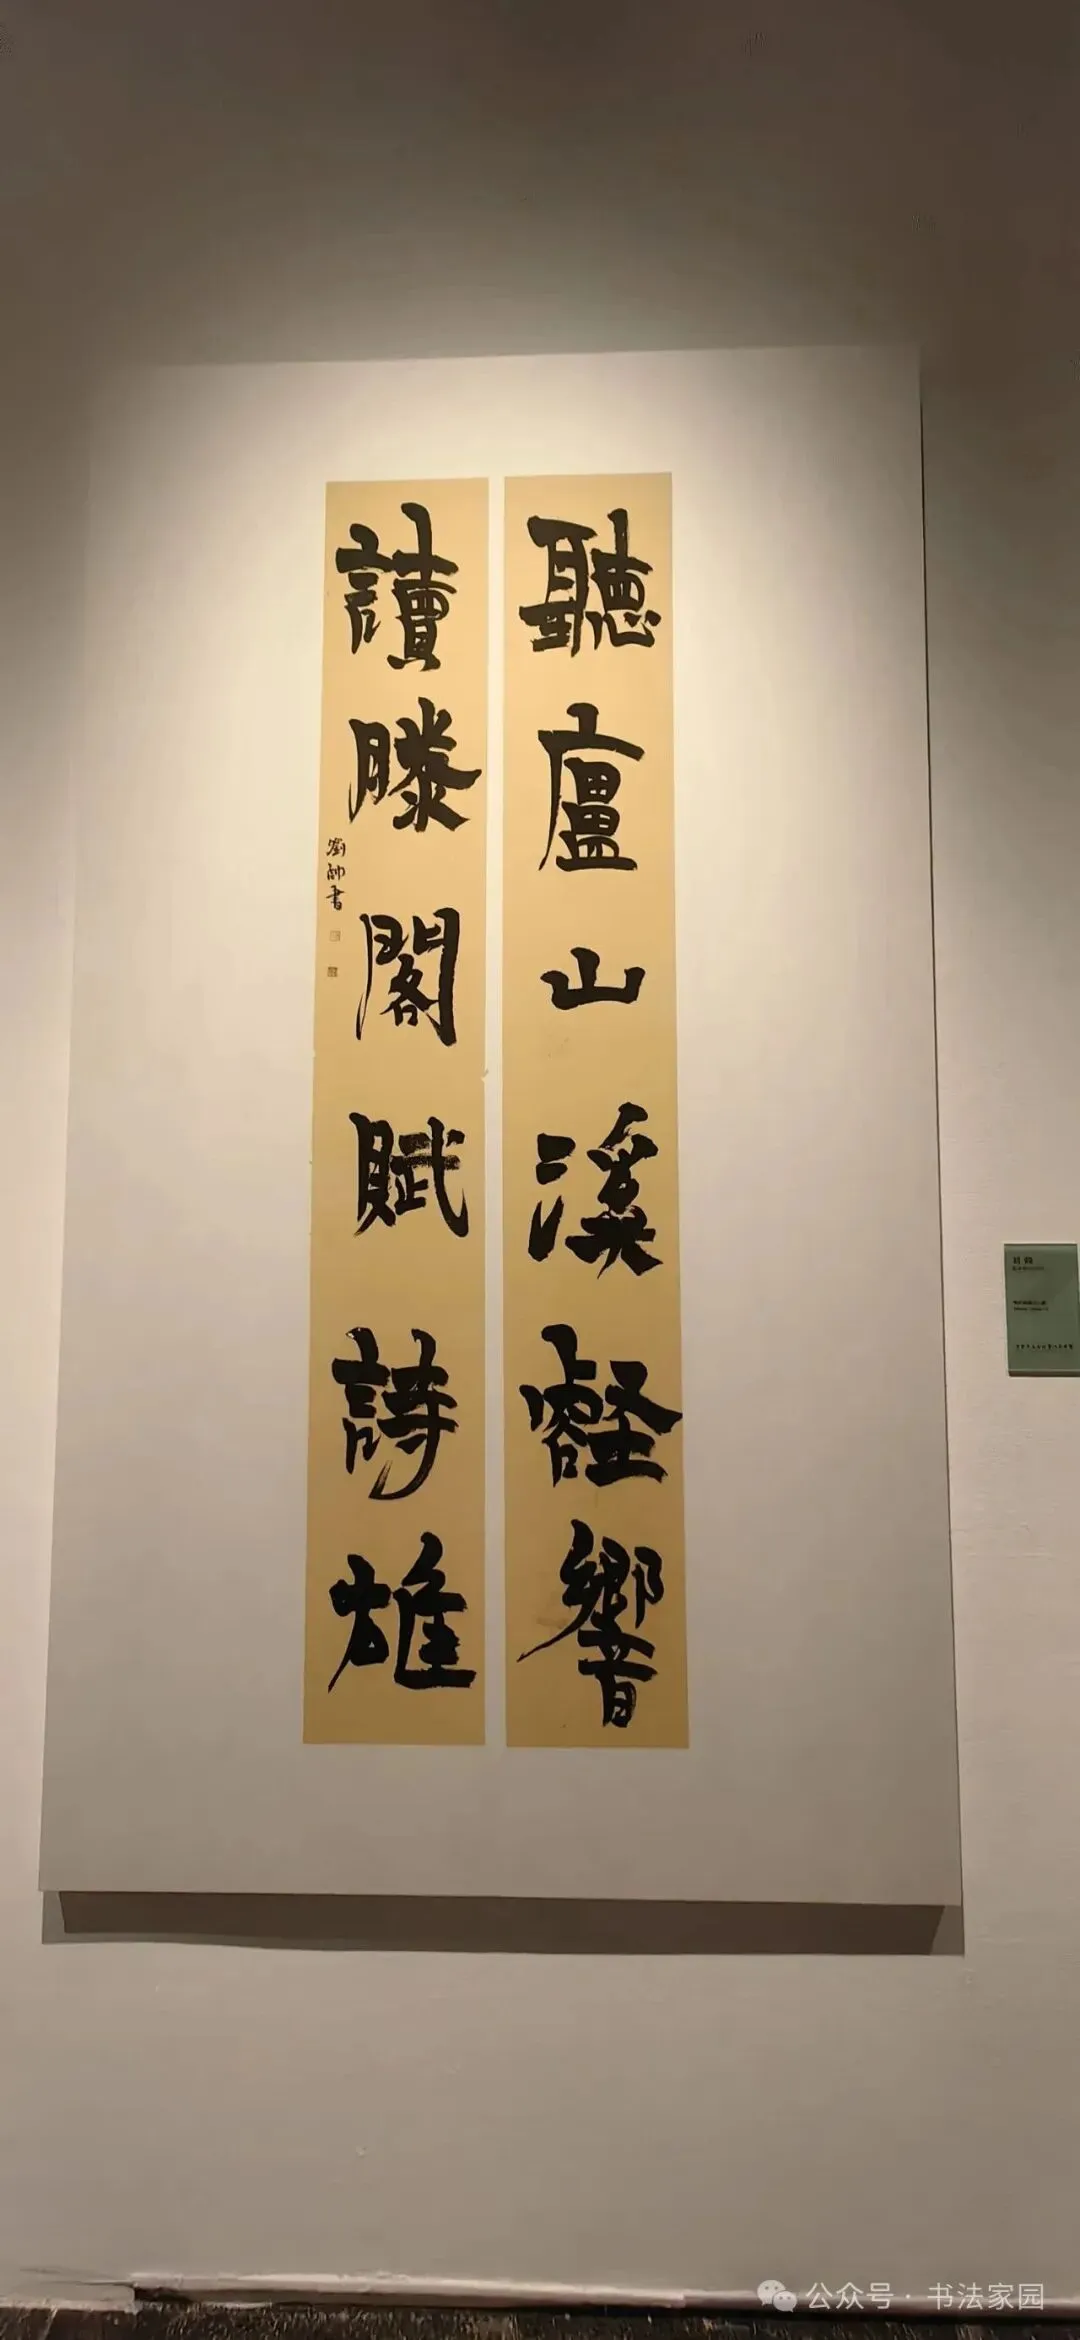 聽廬山溪壑響
讀滕閣賦詩雄
劉帥書
公众号 · 书法家园